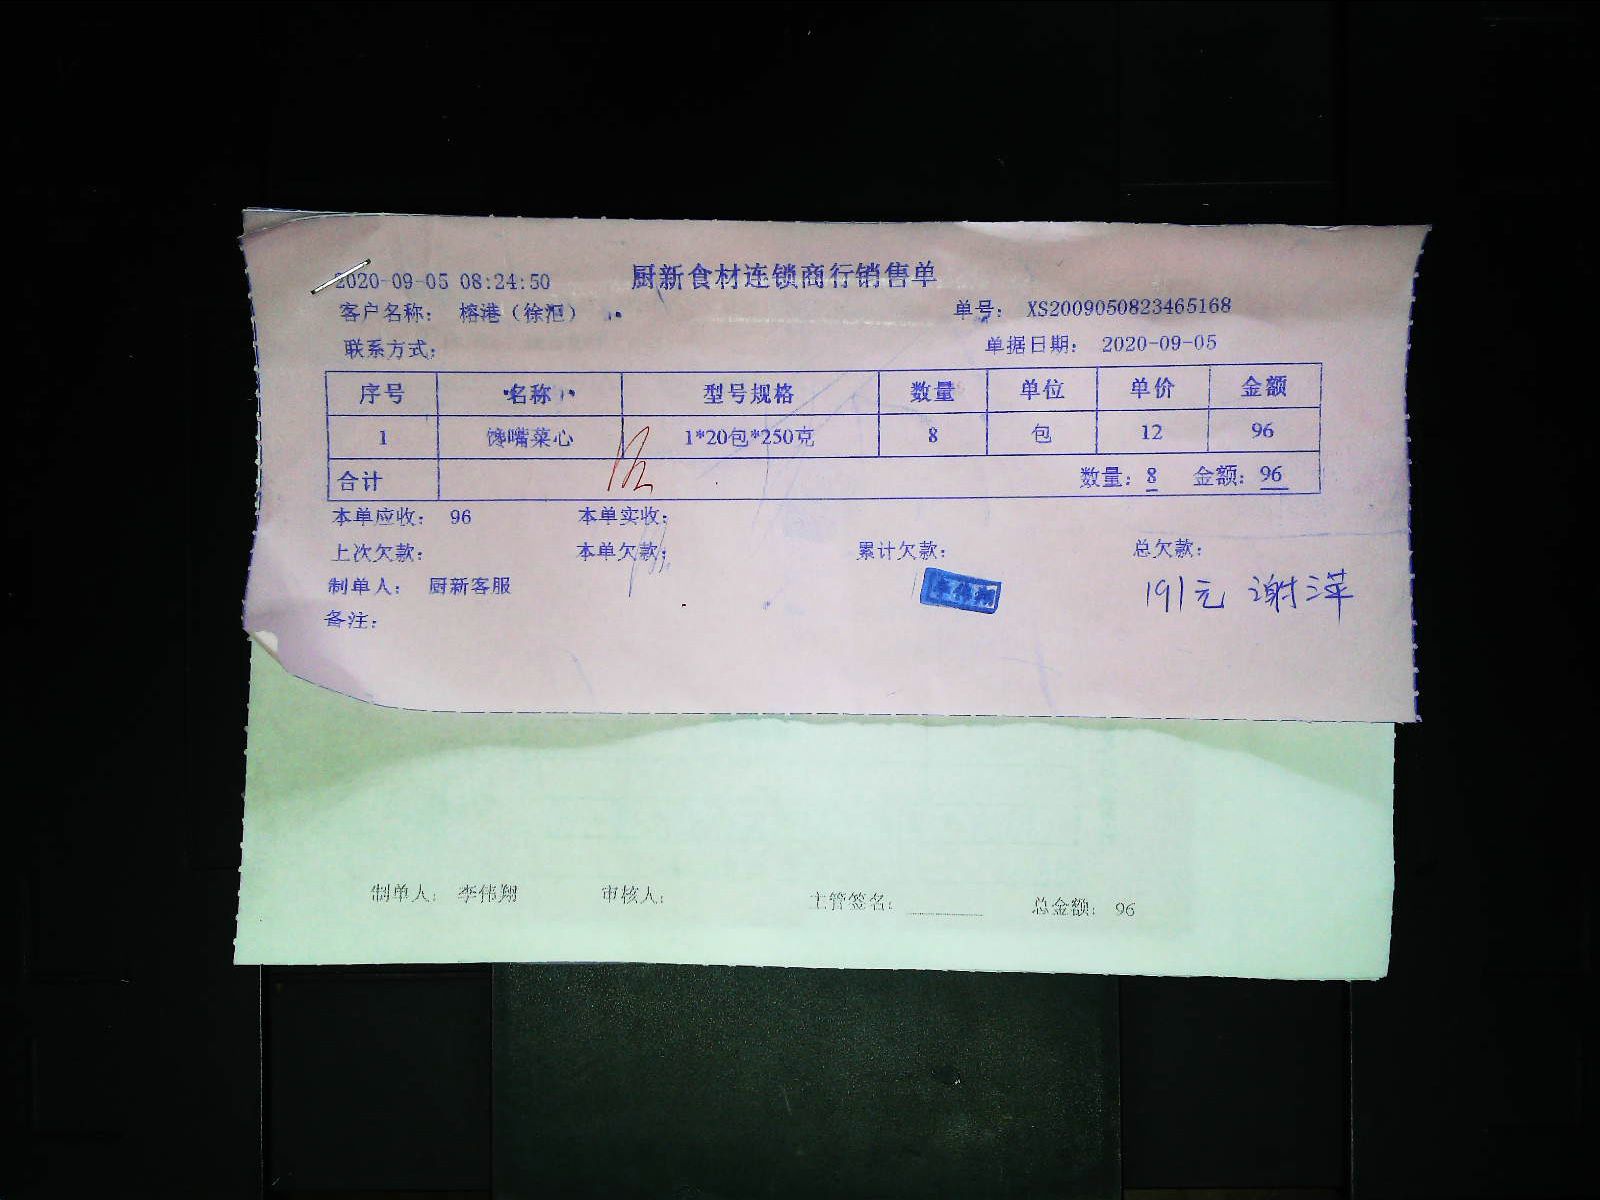 厨新食材连锁商行销售单
2020-09-05 08:24:50
客户名称： 榕港（徐汇） 单号： XS2009050823465168
联系方式： 单据日期： 2020-09-05
序号 名称 型号规格 数量 单位 单价 金额
1 馋嘴菜心 1*20包*250克 8 包 12 96
合计 数量：8 金额：96
本单应收： 96 本单实收：
上次欠款： 本单欠款： 累计欠款： 总欠款：
制单人： 厨新客服
191元 谢萍
备注：
制单人： 李伟翔 审核人： 主管签名： 总金额： 96